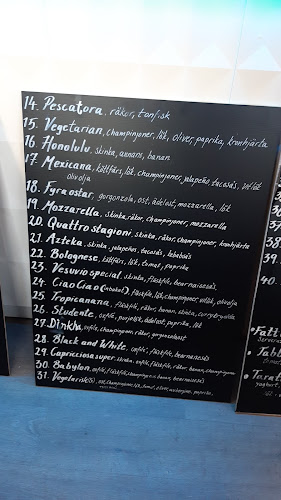 14. Pescatora, räkor, tonfisk
15. Vegetarian, champinjoner, lök, oliver, paprika, kronärtskocka
16. Honolulu, skinka, ananas, banan
17. Mexicana, köttfärs, lök, champinjoner, jalapeño, tacosås, vitlöks
olvolja
18. Fyra ostar, gorgonzola, ost, ädelost, mozzarella, lök
19. Mozzarella, skinka, räkor, champinjoner, mozzarella
20. Quattro stagioni, skinka, räkor, champinjoner, kronhjärta
21. Azteka, skinka, jalapeños, tacosås,
22. Bolognese, köttfärs, lök, tomat, paprika
23. Vesuvio special, skinka, fläskfilé, bearnaisesås
24. Ciao Ciao (inbakad), fläskfilé, lök, champinjoner, vitlök, olivolja
25. Tropicanana, fläskfilé, räkor, banan, skinka, curry
26. Studente, oxfilé, purjolök, ädelost, paprika, lök
27. oxfilé, champinjoner, räkor, gorgonzola
28. Black and White, oxfilé, fläskfilé, bearnaisesås
29. Capricciosa super, skinka, oxfilé, räkor, banan, champinjoner
30. Babylon, oxfilé, fläskfilé, champinjoner, banan, bearnaisesås
31. Vegetarisk champinjoner, lök, tomat, paprika
39
40.